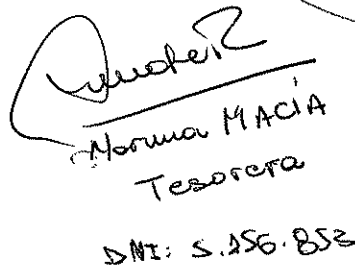 Norma MACÍA
Tesorera
DNI: 5.256.853